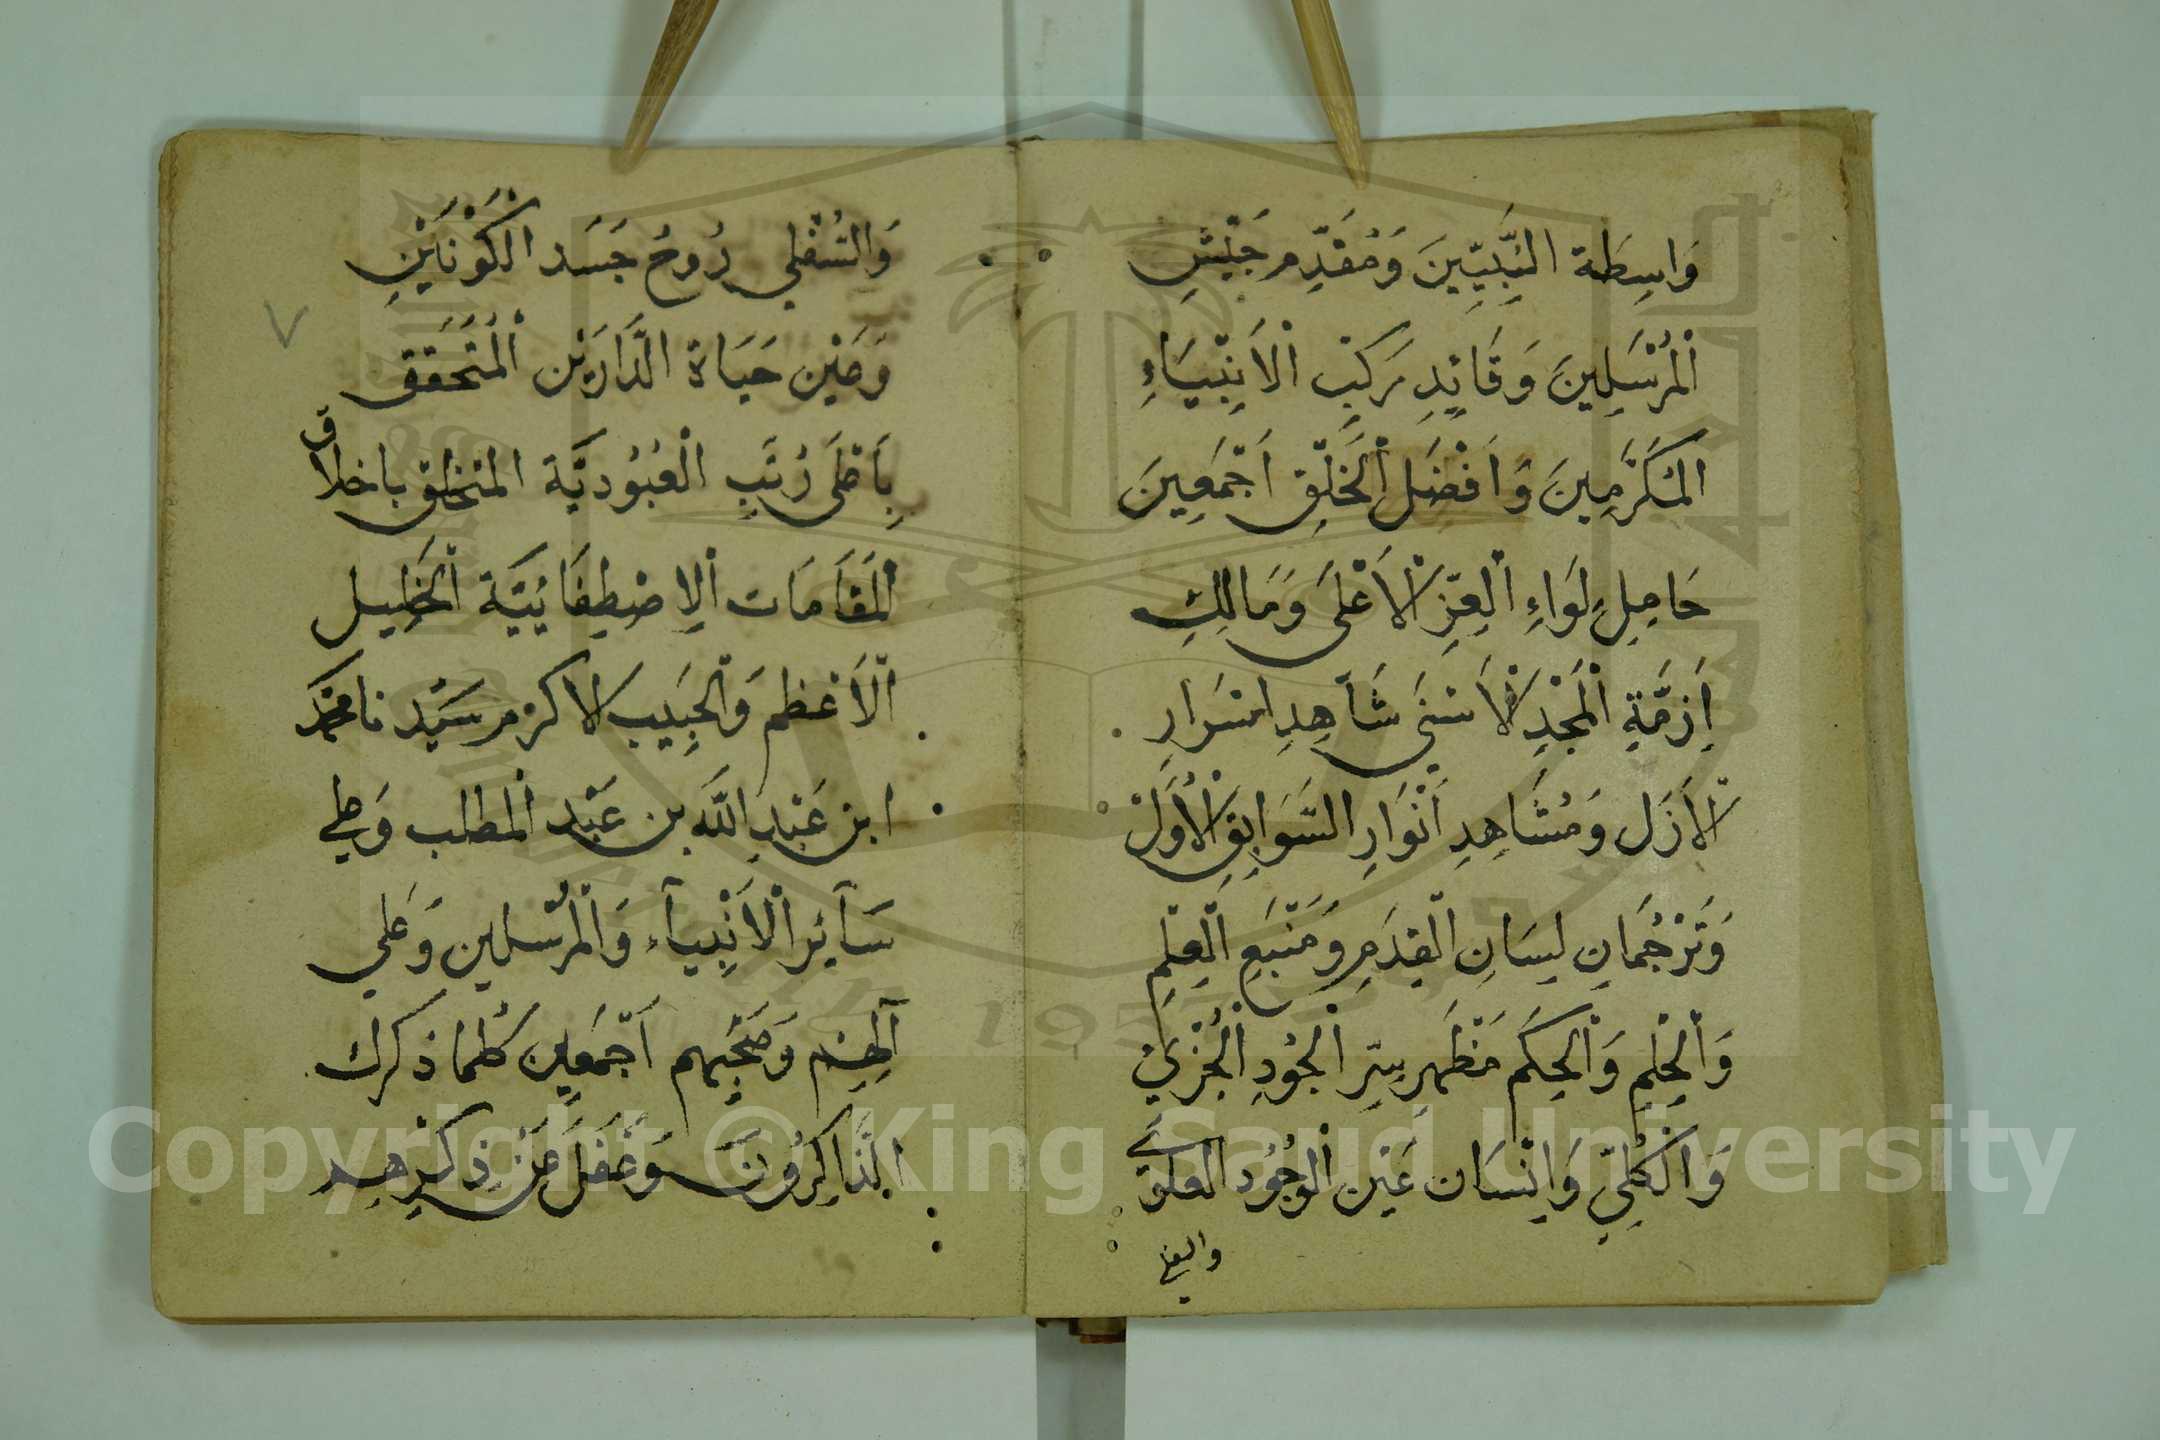 وَاسِطَة النَّبِيِّينَ وَمُقَدِّم جَيْشِ
الْمُرْسَلِينَ وَقَائِدِ رَكْبِ الْأَنْبِيَاءِ
المُكَرَّمِينَ وَاَفْضَلِ الْخَلْقِ اَجْمَعِينَ
حَامِلِ لِوَاءِ الْعِزِّ الْاَعْلَى وَمَالِكِ
اَزِمَّةِ الْمَجْدِ الْاَسْنَى شَاهِدِ اسْرَارِ
الْاَزَل وَمُشَاهِدِ اَنْوَارِ السَّوَابِقِ الْأُوَلْ
وَتَرْجُمَانِ لِسَانِ الْقِدَمِ وَمَنْبَعِ الْعِلْمِ
وَالْحِلْمِ وَالْحِكَمِ مَظْهَرِ سِرِّ الْجُودِ الْجُزْئِيْ
وَالْكُلِّيِّ وَاِنْسَانِ عَيْنِ الْوُجُودِ العلوي
والسفلي
وَالسُّفْلِي رُوحِ جَسَدِ الْكَوْنَيْنِ
٧
وَعَيْنِ حَيَاةِ الدَّارَيْنِ الْمُتَحَقِّقِ
بِاَعْلَى رُتَبِ الْعُبُودِيَّة المتخلق باخلاق
الْمَقَامَات الْاِصْطِفَائِيَّة الْخَلِيل
الْاَعْظم وَالْحَبِيب الاكرم سَيِّدنا محَمَّد
ابن عَبْدِ اللَّه بن عَبْد الْمطلب وَعلى
سَآئِر الْاَنْبِيآء وَالْمُرْسلين وَعَلي
آلِهِم وَصَحْبِهم اَجْمَعِين كُلما ذكرك
الذَّاكِرُونَ وَغَفَلَ عَنْ ذِكْرِهِم
Copyright © King Saud University
1957